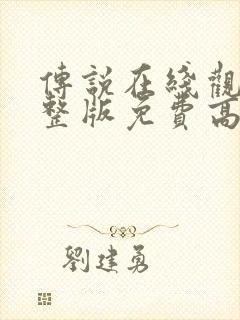 傳說在綫觀
整版免費高
劉建勇